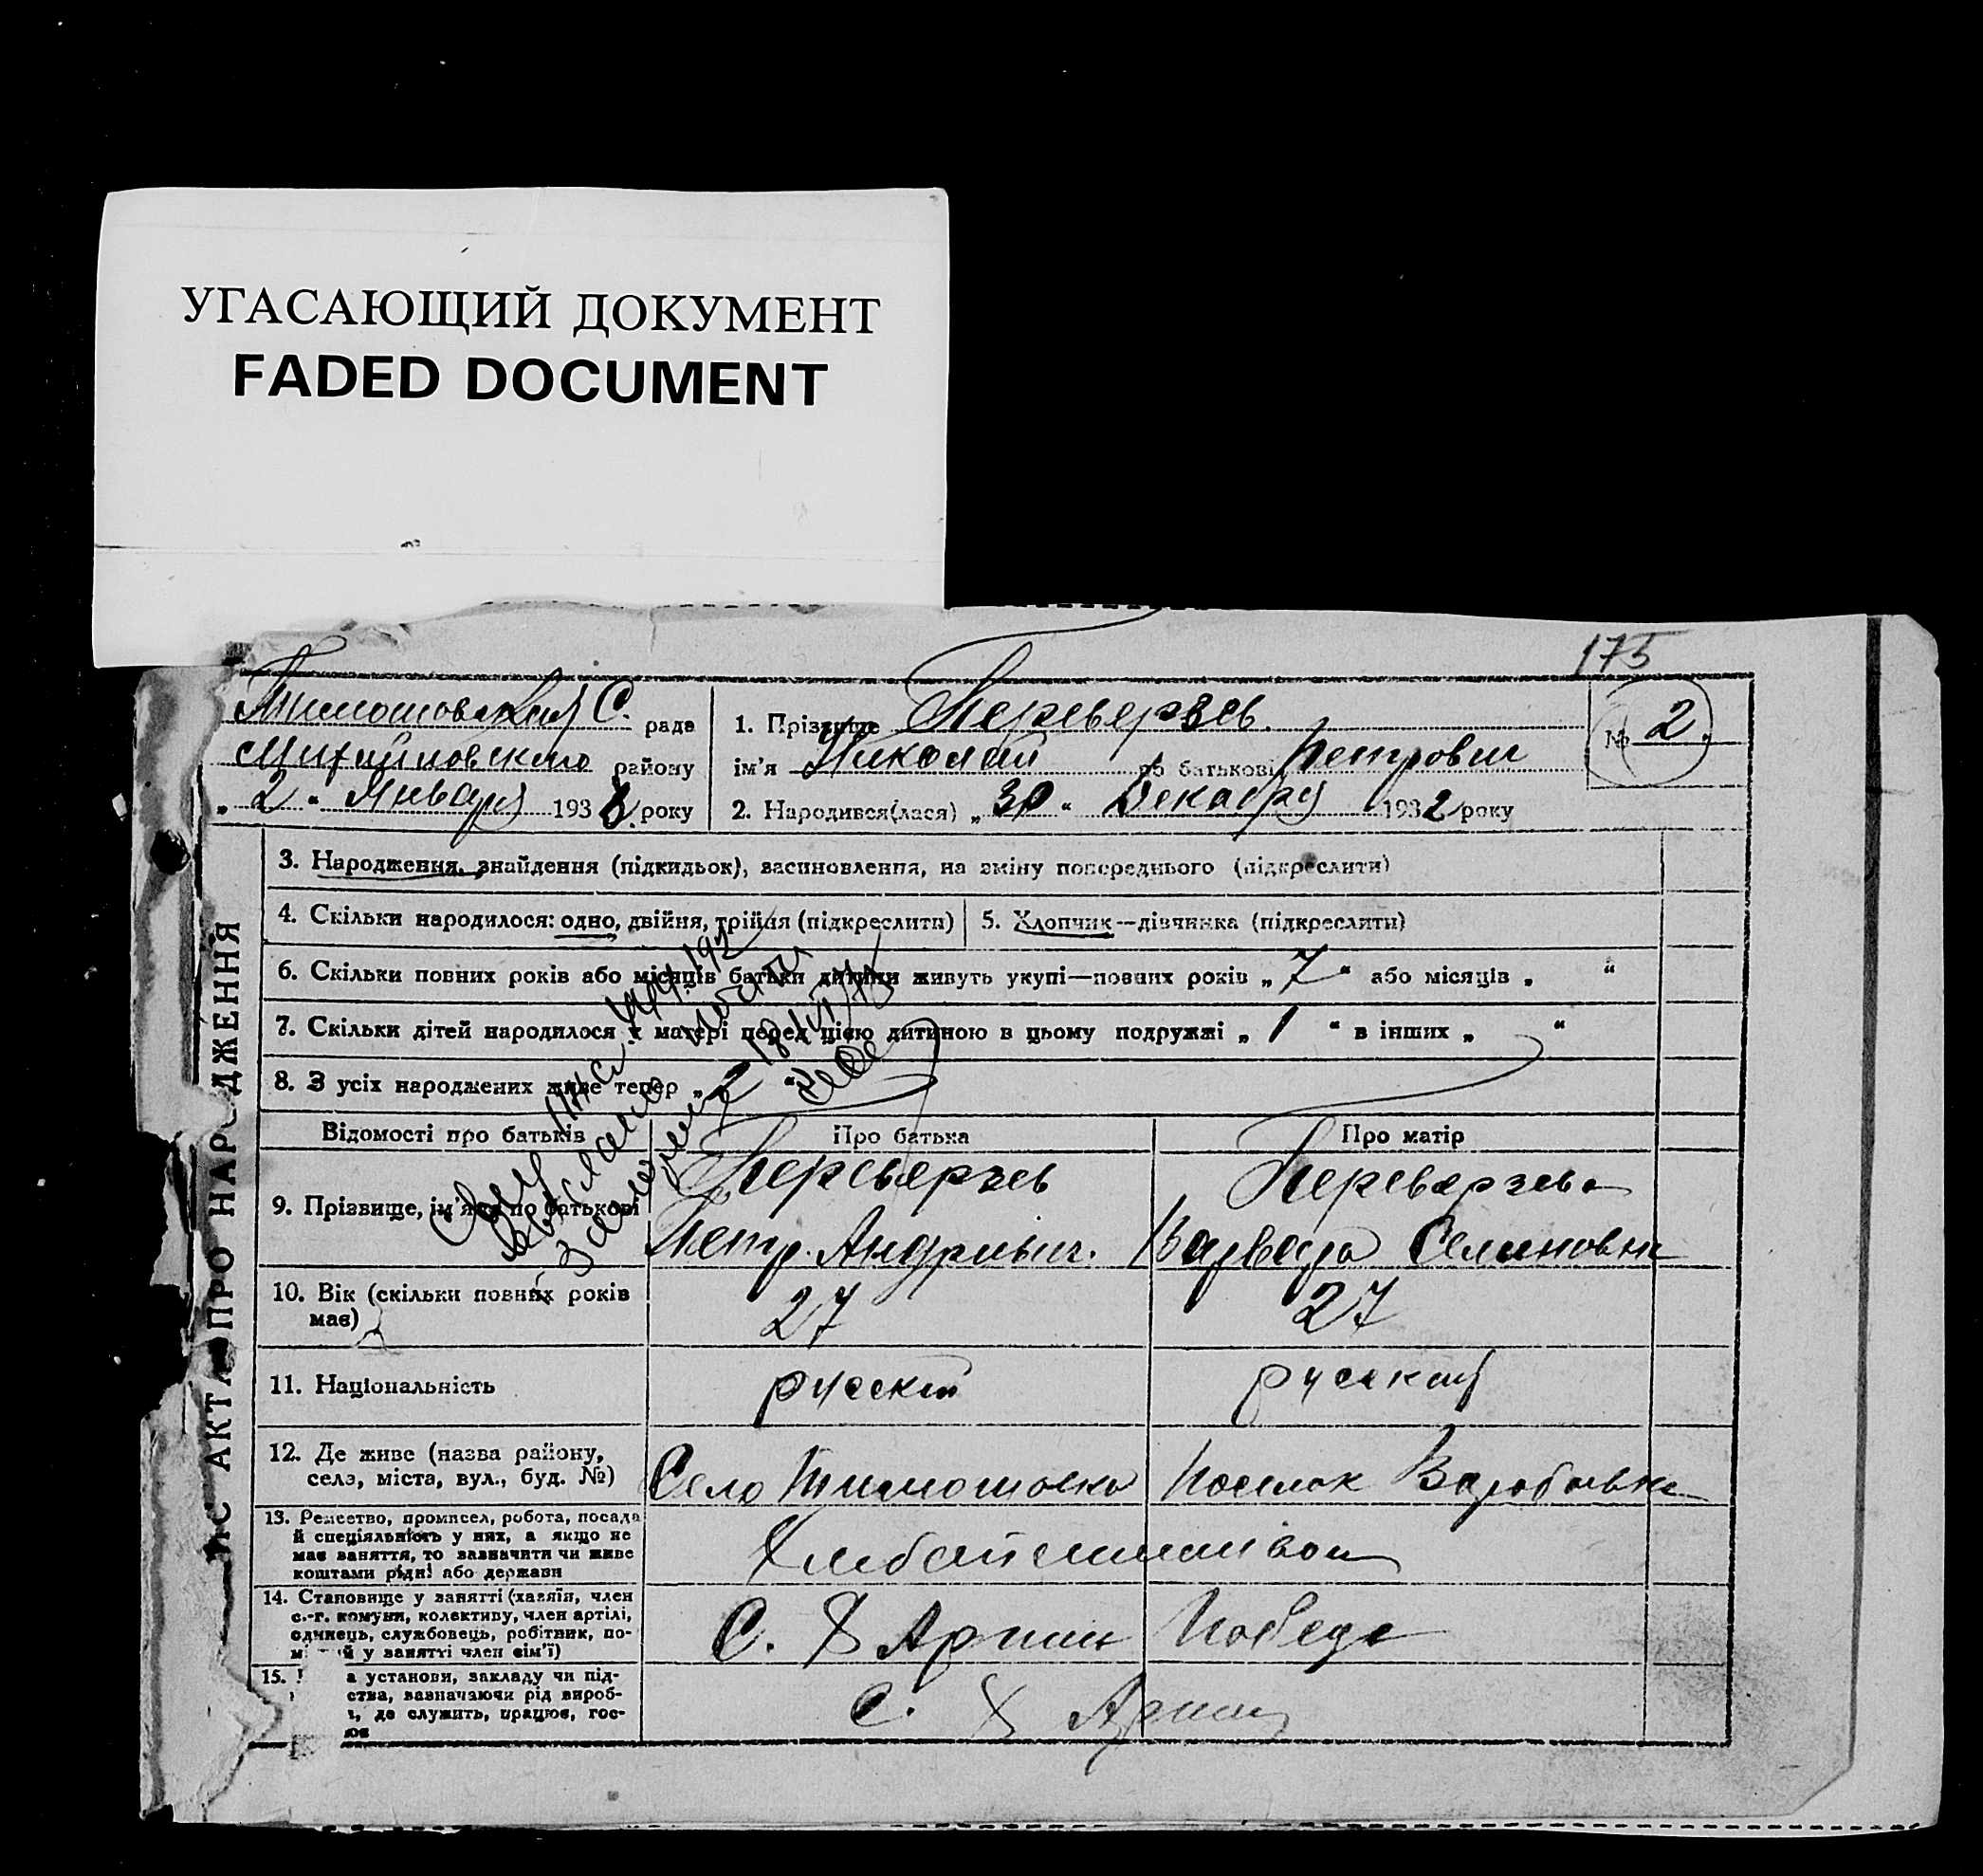 УГАСАЮЩИЙ ДОКУМЕНТ
FADED DOCUMENT
175
Тимошовская С. рада
Михайловского району
„ 2 “ Января 1933 року
1. Прізвище Переверзев.
ім'я Николай по батькові Петрович
№ 2.
2. Народився(лася) „ 30 “ Декабря 1932 року
ИС АКТА ПРО НАРОДЖЕННЯ
3. Народження, знайдення (підкидьок), васиновлення, на зміну попереднього (підкреслити)
4. Скільки народилося: одно, двійня, трійня (підкреслити) 5. Хлопчик—дівчинка (підкреслити)
6. Скільки повних років або місяців батьки дитини живуть укупі—повних років „ 7 “ або місяців „ “
7. Скільки дітей народилося у матері перед цією дитиною в цьому подружжі „ 1 “ в інших „ “
8. З усіх народжених живе тепер „ 2 “
Відомості про батьків Про батька Про матір
9. Прізвище, ім'я та по батькові
Переверзев Переверзева
Петр. Андреевич. Варвара Семеновна
10. Вік (скільки повних років має) 27 27
11. Національність русский русская
12. Де живе (назва району, села, міста, вул., буд. №)
Село Тимошовка Поселок
13. Ремество, промисел, робота, посада
й спеціяльність у них, а якщо не
має заняття, то зазначити чи живе
коштами рідні або держави
14. Становище у занятті (хазяїн, член
с.-г. комуни, колективу, член артілі,
одинець, службовець, робітник, по-
й у занятті член сім'ї)
С. Х Артил Победа
15. а установи, закладу чи під-
ства, зазначаючи рід вироб-
де служить, працює, гос-
С. Х Артил